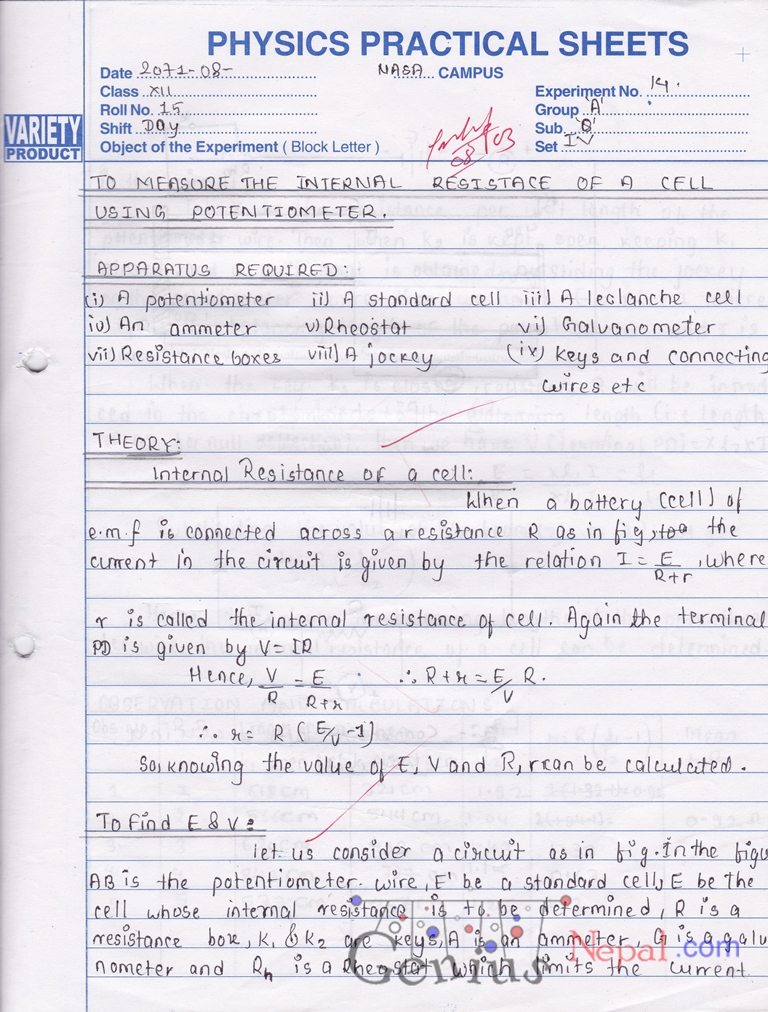 PHYSICS PRACTICAL SHEETS
Date 2071-08-
NASA CAMPUS
Class XII
Experiment No. 14.
Roll No. 15
Group 'A'
VARIETY
PRODUCT
Shift Day
Sub. 'B'
Object of the Experiment ( Block Letter )
08/03
Set IV
TO MEASURE THE INTERNAL RESISTACE OF A CELL
USING POTENTIOMETER.
APPARATUS REQUIRED:
(i) A potentiometer ii) A standard cell iii) A leclanche cell
iv) An ammeter v) Rheostat vi) Galvanometer
vii) Resistance boxes viii) A jockey (ix) keys and connecting
wires etc
THEORY:
Internal Resistance of a cell:
When a battery (cell) of
e.m.f is connected across a resistance R as in fig, the
current in the circuit is given by the relation I = E/R+r, where
r is called the internal resistance of cell. Again the terminal
PD is given by V = IR
Hence, V/R = E/R+r ∴ R+r = E/V R.
∴ r = R (E/V -1)
So, knowing the value of E, V and R, r can be calculated.
To find E & V:
let us consider a circuit as in fig. In the figu
AB is the potentiometer wire, E' be a standard cell, E be the
cell whose internal resistance is to be determined, R is a
resistance box, K1 & K2 are keys, A is an ammeter, G is a galva
nometer and Rh is a Rheostat which limits the current
Genius Nepal .com